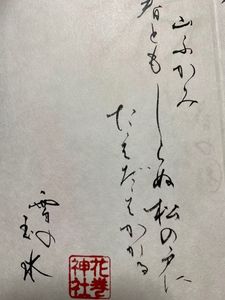 山ふかみ
春ともしらぬ松の戸に
たえだえかかる
雪の玉水
花巻
神社